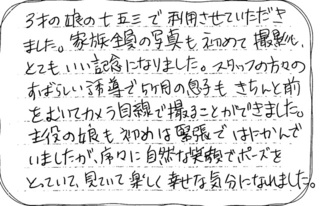 3才の娘の七五三で利用させていただき
ました。家族全員の写真も初めて撮影し、
とてもいい記念になりました。スタッフの方々の
すばらしい誘導で5ヶ月の息子もきちんと前
をむいてカメラ目線で撮ることができました。
主役の娘も初めは緊張ではにかんで
いましたが、序々に自然な笑顔でポーズを
とっていて、見ていて楽しく幸せな気分になれました。